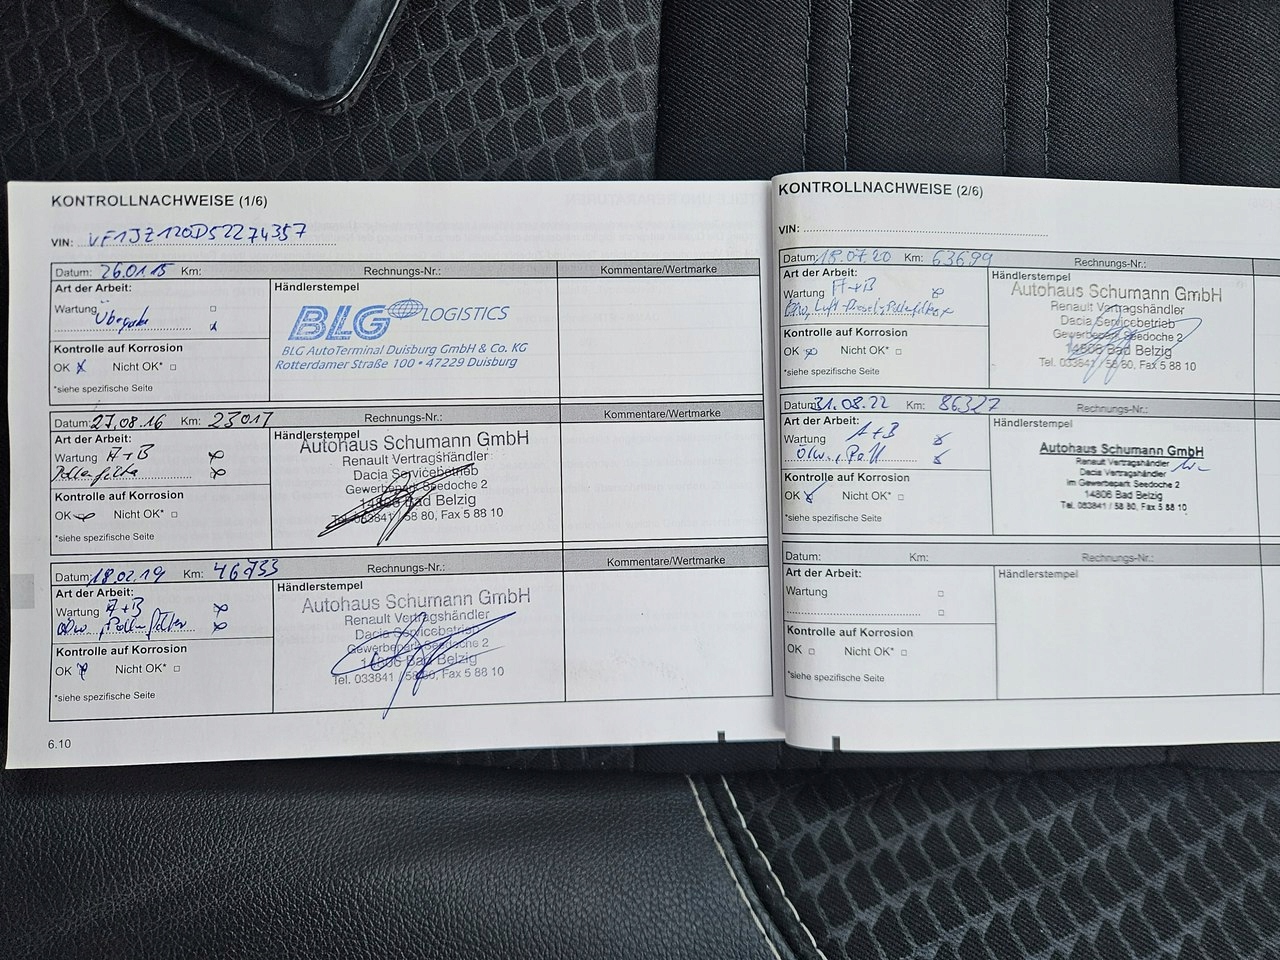 KONTROLLNACHWEISE (1/6)
VIN: VF1JZ120D52274357
Datum: 26.01.15 Km: Rechnungs-Nr.: Kommentare/Wertmarke
Art der Arbeit: Händlerstempel
Wartung
Übergabe
BLG LOGISTICS
BLG AutoTerminal Duisburg GmbH & Co. KG
Rotterdamer Straße 100 • 47229 Duisburg
Kontrolle auf Korrosion
OK Nicht OK*
*siehe spezifische Seite
Datum: 27.08.16 Km: 23017 Rechnungs-Nr.: Kommentare/Wertmarke
Art der Arbeit: Händlerstempel
Wartung A+B
Pollenfilter
Autohaus Schumann GmbH
Renault Vertragshändler
Dacia Servicebetrieb
Gewerbepark Seedoche 2
14806 Bad Belzig
Tel. 033841 / 58 80, Fax 5 88 10
Kontrolle auf Korrosion
OK Nicht OK*
*siehe spezifische Seite
Datum: 18.02.19 Km: 46733 Rechnungs-Nr.: Kommentare/Wertmarke
Art der Arbeit: Händlerstempel
Wartung A+B
Ölw., Pollenfilter
Autohaus Schumann GmbH
Renault Vertragshändler
Dacia Servicebetrieb
Gewerbepark Seedoche 2
14806 Bad Belzig
Tel. 033841 / 58 80, Fax 5 88 10
Kontrolle auf Korrosion
OK Nicht OK*
*siehe spezifische Seite
6.10
KONTROLLNACHWEISE (2/6)
VIN:
Datum: 18.07.20 Km: 63699 Rechnungs-Nr.:
Art der Arbeit: Händlerstempel
Wartung A+B
Ölw, Luft Pollenfilter
Autohaus Schumann GmbH
Renault Vertragshändler
Dacia Servicebetrieb
Gewerbepark Seedoche 2
14806 Bad Belzig
Tel. 033841 / 58 80, Fax 5 88 10
Kontrolle auf Korrosion
OK Nicht OK*
*siehe spezifische Seite
Datum: 31.08.22 Km: 86327 Rechnungs-Nr.:
Art der Arbeit: Händlerstempel
Wartung A+B
Ölw., Poll
Autohaus Schumann GmbH
Renault Vertragshändler
Dacia Vertragshändler
Im Gewerbepark Seedoche 2
14806 Bad Belzig
Tel. 033841 / 58 80, Fax 5 88 10
Kontrolle auf Korrosion
OK Nicht OK*
*siehe spezifische Seite
Datum: Km: Rechnungs-Nr.:
Art der Arbeit: Händlerstempel
Wartung
Kontrolle auf Korrosion
OK Nicht OK*
*siehe spezifische Seite